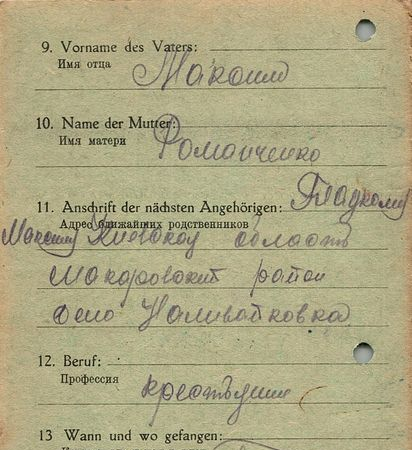 9. Vorname des Vaters:
Имя отца
Максим
10. Name der Mutter:
Имя матери
Романченко
11. Anschrift der nächsten Angehörigen: Гладкому
Адрес ближайших родственников
Максиму Киевской область
Макаровский район
село Наливайковка
12. Beruf:
Профессия
крестьянин
13 Wann und wo gefangen: